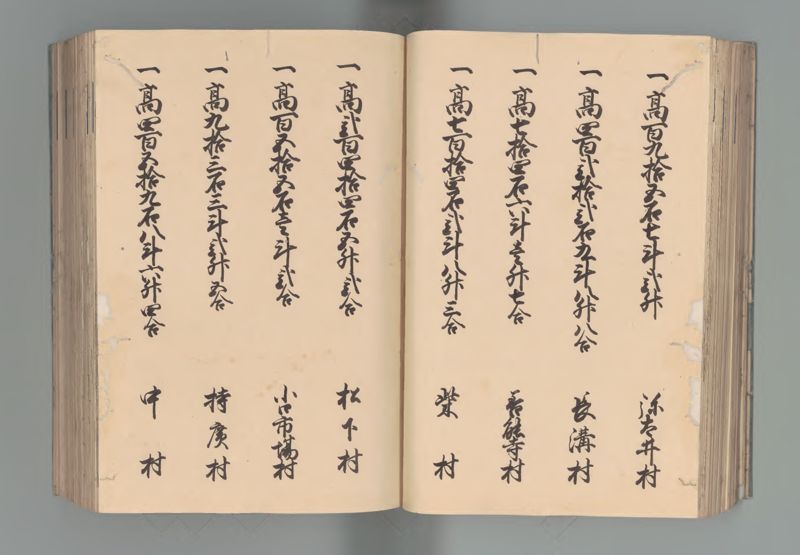 一高百九拾五石七斗弐升 弥吉井村
一高四百弐拾弐石九斗八升八合 長溝村
一高七拾四石六斗壱升七合 善能寺村
一高七百拾四石弐斗八升三合 柴村
一高弐百四拾四石五升弐合 松下村
一高百五拾五石壱斗弐合 小口市場村
一高九拾三石三斗弐升五合 持廣村
一高四百五拾九石八斗六升四合 中村